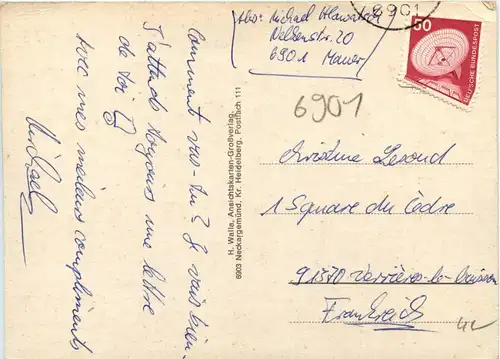 Abs: Michael Hlawatsch
Weldenstr. 20
6901 Mauer
6901
50
DEUTSCHE BUNDESPOST
6901
Comment vas-tu? Je vais bien.
J'attends toujours une lettre
de toi
avec mes meilleurs compliments
Michael
H. Walla, Ansichtskarten-Großverlag,
6903 Neckargemünd, Kr. Heidelberg, Postfach 111
Christine Lesond
1 Square du Cèdre
91370 Verrières-le-Buisson
Frankreich